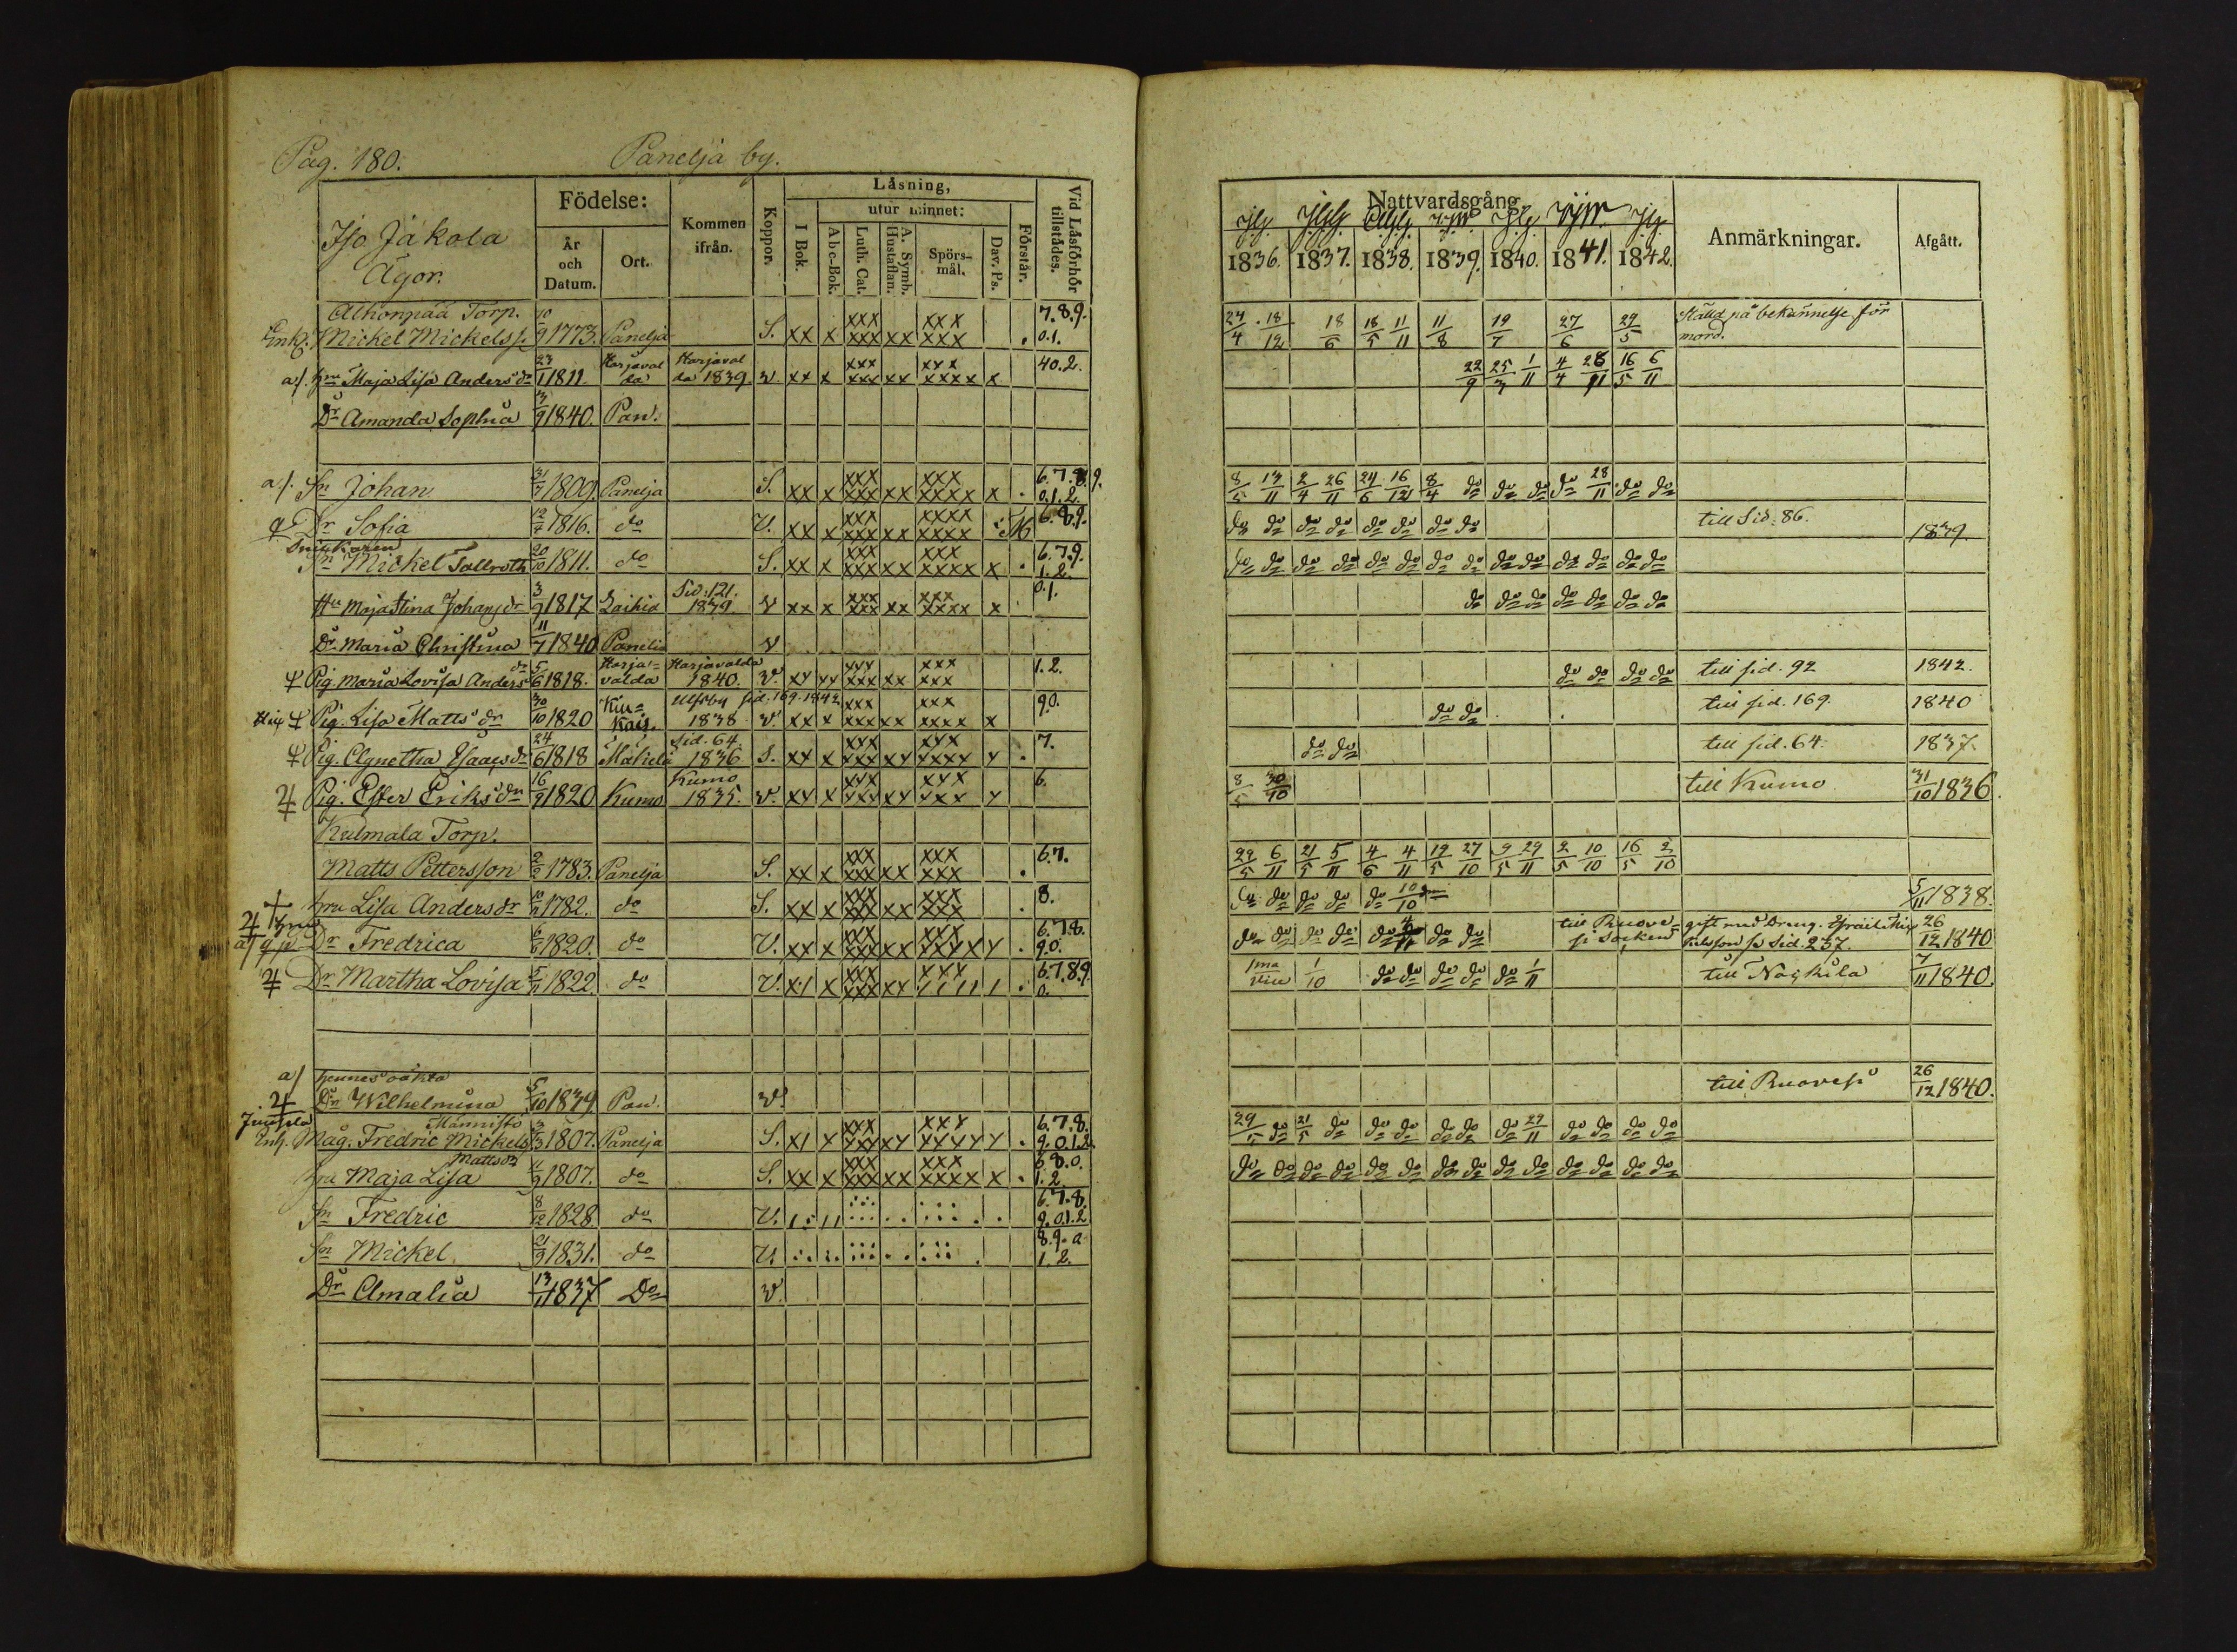 Pag. 180. Panelja by.
Iso Jakola
Ägor.
Födelse:
År
och
Datum.
Ort.
Kommen
ifrån.
Koppor.
Läsning,
utur minnet:
I Bok.
A b c-Bok.
Luth. Cat.
A. Symb.
Hustaflan.
Spörs-
mål.
Dav. Ps.
Förstår.
Vid Läsförhör
tillstädes.
Alhonpää Torp.
Enkl. Mickel Mickelss. 10/9 1773. Panelja S. xx x xxx xxx xx xxx xxx . 7.8.9. 0.1.
a/. hru Maja Lisa Anders dr 23/1 1811. Harjaval da Harjaval da 1839. v. xx x xxx xxx xx xxx xxxx x 40.2.
Dr Amanda Sophia 3/9 1840. Pan.
a/. Sn Johan 31/7 1809. Panelja S. xx x xxx xxx xx xxx xxxx x . 6.7.8.9. 0.1.2.
Dr Sofia 12/4 1816. do V. xx x xxx xxx xx xxxx xxxx 6.8.9.
Snickaren
Sn Mickel Tallroth 20/10 1811. do S. xx x xxx xxx xx xxx xxxx x . 6.7.9. 1.2.
Hu Maja Stina Johans dr 3/9 1817 Laihia Sid: 121. 1839 v xx x xxx xxx xx xxx xxxx x 0.1.
Dr. Maria Christina 11/7 1840 Panelia v
Pig. Maria Lovisa Anders dr 5/6 1818. Harja= valda Harjavalda 1840. v. xx xx xxx xxx xx xxx xxx 1.2.
Pig. Lisa Matts dr 30/10 1820 Kiu= kais. Ulfsby sid. 169. 1842 1838 v. xx x xxx xxx xx xxx xxxx x 9.0.
Pig. Agnetha Isaacs dr 24/6 1818 Sid. 64. 1836 S. xx x xxx xxx xx xxx xxxx x . 7.
Pig. Ester Eriks dr 16/9 1820 Kumo Kumo 1835. v. xx x xxx xxx xx xxx xxx x 6.
Kulmala Torp.
Matts Pettersson 2/2 1783. Panelja S. xx x xxx xxx xx xxx xxx . 6.7.
hru Lisa Anders dr 1782. do S. xx x xxx xxx xx xxx xxx . 8.
Dr Fredrica 1820. do V. xx x xxx xxx xx xxx xxxx x . 6.7.8. 9.0.
Dr Martha Lovisa 1822. do V. xx x xxx xxx xx xxx . 6.7.8.9. 0.
a/ hennes oäkta
Dr Wilhelmina 5/10 1839 Pan. v.
Männistö
Enk. Mag. Fredric Mickelss. 1807. Panelja S. xx x xxx xxx xx xxx xxxx x . 6.7.8. 9.0.1.2.
Matts dr
hru Maja Lisa 1807. do S. xx x xxx xxx xx xxx xxxx x . 6.8.0. 1.2.
Sn Fredric 8/12 1828 do V. 6.7.8. 9.0.1.2
Sn Mickel 21/9 1831. do V. 8.9.0 1.2.
Dr Amalia 13/11 1837 Do v.
Nattvardsgång
1836. 1837. 1838. 1839. 1840. 1841. 1842.
Anmärkningar.
Afgått.
24/4 18/12 18/6 18/5 11/11 11/8 19/7 27/6 29/5 Ställd på bekännelse för
mord.
22/9 25/3 1/11 4/4 28/11 16/5 6/11
8/5 13/11 2/4 26/11 24/6 16/12 8/4 do do do do 28/11 do do
do do do do do do do do till Sid: 86. 1839.
do do do do do do do do do do do do do do
do do do do do do do
do do do do till sid. 92 1842.
do do till sid. 169. 1840
do do till sid. 64. 1837.
8/5 30/10 till Kumo 31/10 1836.
29/5 6/11 21/5 5/11 4/6 4/11 19/5 27/10 9/5 29/11 2/5 10/10 16/5 2/10
do do do do do 10/10 5/11 1838.
do do do do do 4/11 do do till Ruove- si Socken gift med Dreng. Israel
Sid. 237. 26/12 1840
1ma vice 1/10 do do do do do 1/11 till 7/11 1840.
till Ruovesi 26/12 1840.
29/5 do 21/5 do do do do do do 29/11 do do do do
do do do do do do do do do do do do do do